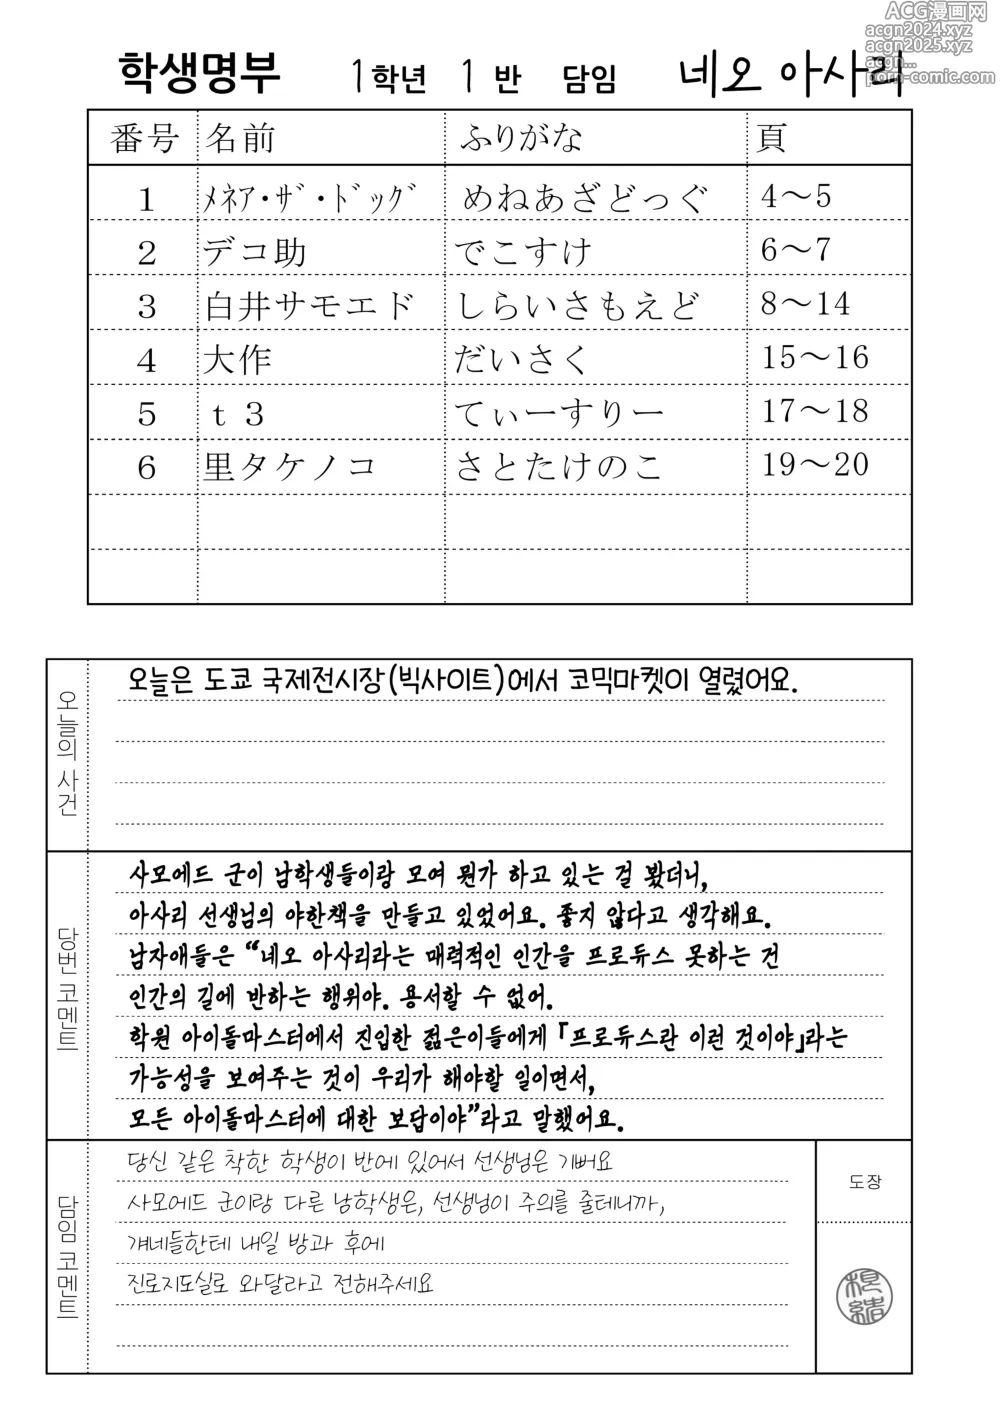 ACG漫画网
acgn2024.xyz
acgn2025.xyz
acgn...
porn-comic.com
학생명부 1학년 1 반 담임 네오 아사리
番号 名前 ふりがな 頁
1 ﾒﾈｱ・ｻﾞ・ﾄﾞｯｸﾞ めねあざどっぐ 4～5
2 デコ助 でこすけ 6～7
3 白井サモエド しらいさもえど 8～14
4 大作 だいさく 15～16
5 ｔ３ てぃーすりー 17～18
6 里タケノコ さとたけのこ 19～20
오늘의 사건
오늘은 도쿄 국제전시장(빅사이트)에서 코믹마켓이 열렸어요.
당번 코멘트
사모에드 군이 남학생들이랑 모여 뭔가 하고 있는 걸 봤더니,
아사리 선생님의 야한책을 만들고 있었어요. 좋지 않다고 생각해요.
남자애들은 “네오 아사리라는 매력적인 인간을 프로듀스 못하는 건
인간의 길에 반하는 행위야. 용서할 수 없어.
학원 아이돌마스터에서 진입한 젊은이들에게 「프로듀스란 이런 것이야」라는
가능성을 보여주는 것이 우리가 해야할 일이면서,
모든 아이돌마스터에 대한 보답이야”라고 말했어요.
담임 코멘트
당신 같은 착한 학생이 반에 있어서 선생님은 기뻐요
사모에드 군이랑 다른 남학생은, 선생님이 주의를 줄테니까,
걔네들한테 내일 방과 후에
진로지도실로 와달라고 전해주세요
도장
根緒